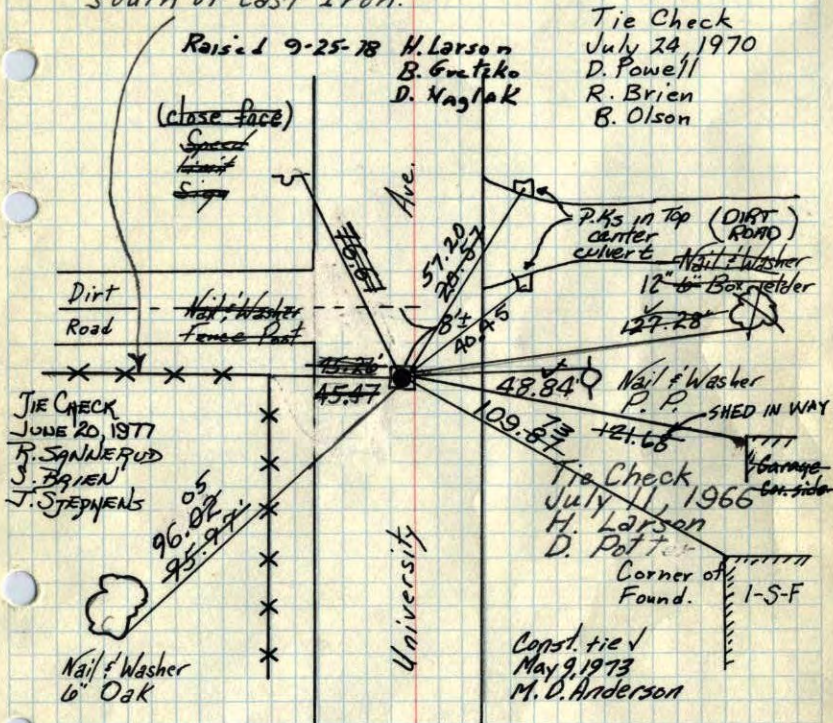 South of Cast Iron.
Raised 9-25-78 H. Larson
B. Gretzko
D. Naglak
Tie Check
July 24, 1970
D. Powell
R. Brien
B. Olson
(close face)
Speed
Limit
Sign
Ave.
57.20
P.Ks in Top
center
culvert
(DIRT
ROAD)
Nail & Washer
12" 6" Box elder
127.28
Dirt
Road
Nail & Washer
Fence Post
8'±
40.45
45.26
45.47
48.84
Nail & Washer
P. P.
SHED IN WAY
121.68
Garage
Cor. side
TIE CHECK
JUNE 20, 1977
R. SANNERUD
S. BRIEN
J. STEPHENS
109.87
73
Tie Check
July 11, 1966
H. Larson
D. Potter
05
96.02
95.97
Corner of
Found.
1-S-F
University
Nail & Washer
6" Oak
Const. tie √
May 9, 1973
M. D. Anderson